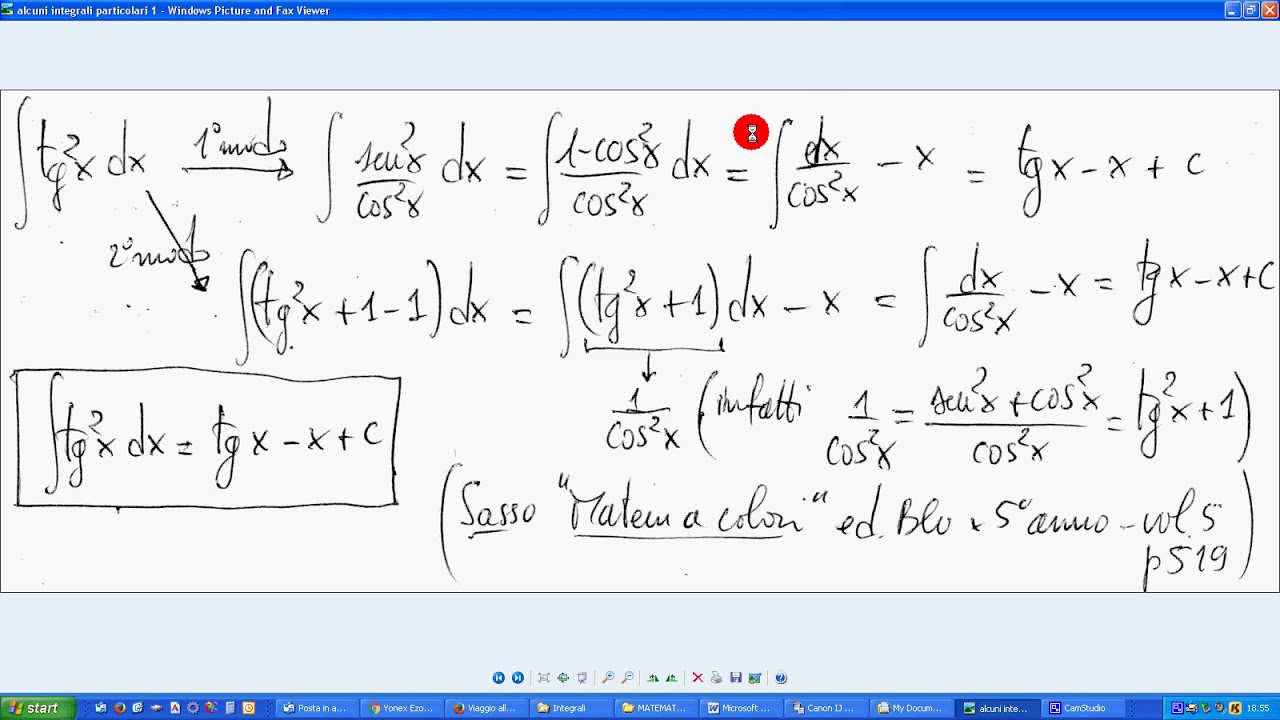 alcuni integrali particolari 1 - Windows Picture and Fax Viewer
∫ tg²x dx 1° modo → ∫ sen²x/cos²x dx = ∫ (1-cos²x)/cos²x dx = ∫ dx/cos²x - x = tg x - x + c
2° modo
∫ (tg²x + 1 - 1) dx = ∫ (tg²x + 1) dx - x = ∫ dx/cos²x - x = tg x - x + c
1/cos²x (infatti 1/cos²x = (sen²x + cos²x)/cos²x = tg²x + 1)
∫ tg²x dx = tg x - x + c
(Sasso "Matem a colori" ed. Blu x 5° anno - vol. 5
p 519)
start Posta in a... Yonex Ezo... Viaggio all... Integrali MATEMAT... Microsoft ... Canon IJ ... My Docum... alcuni inte... CamStudio 18.55